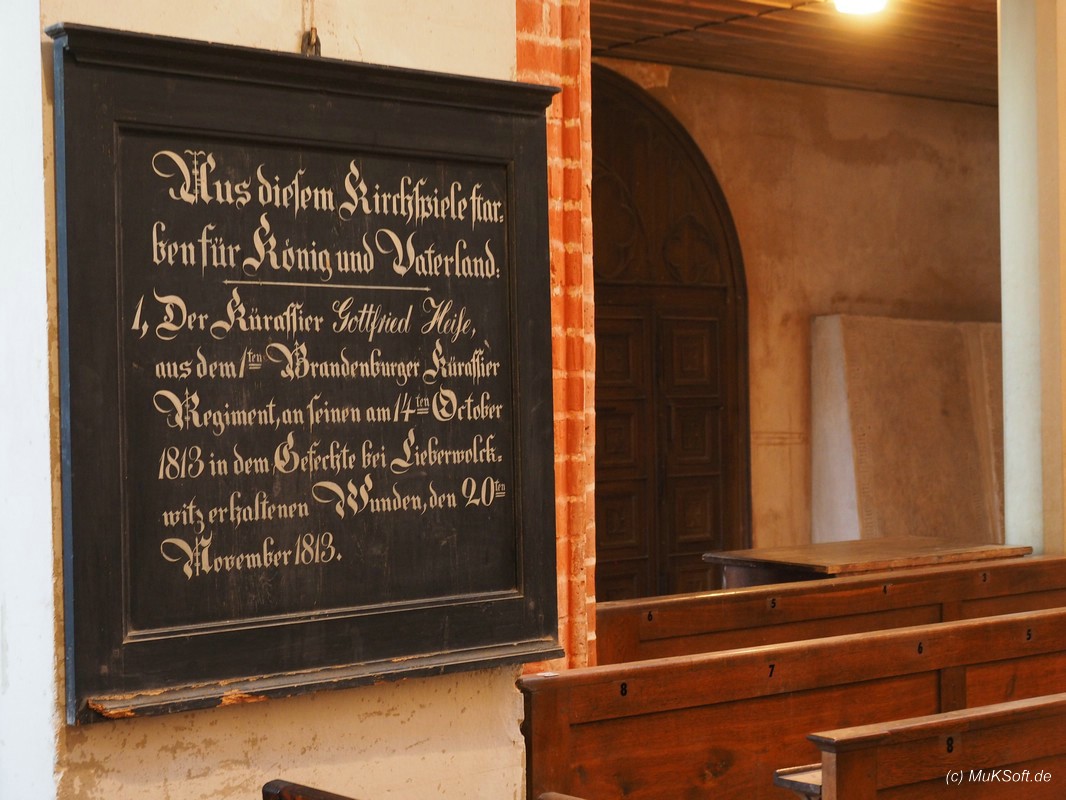 Aus diesem Kirchspiele star-
ben für König und Vaterland:
1, Der Kürassier Gottfried Heise,
aus dem 1ten Brandenburger Kürassier
Regiment, an seinen am 14ten October
1813 in dem Gefechte bei Lieberwolck-
witz erhaltenen Wunden, den 20ten
November 1813.
6 5 4 3
8 7 6 5
8
(c) MuKSoft.de